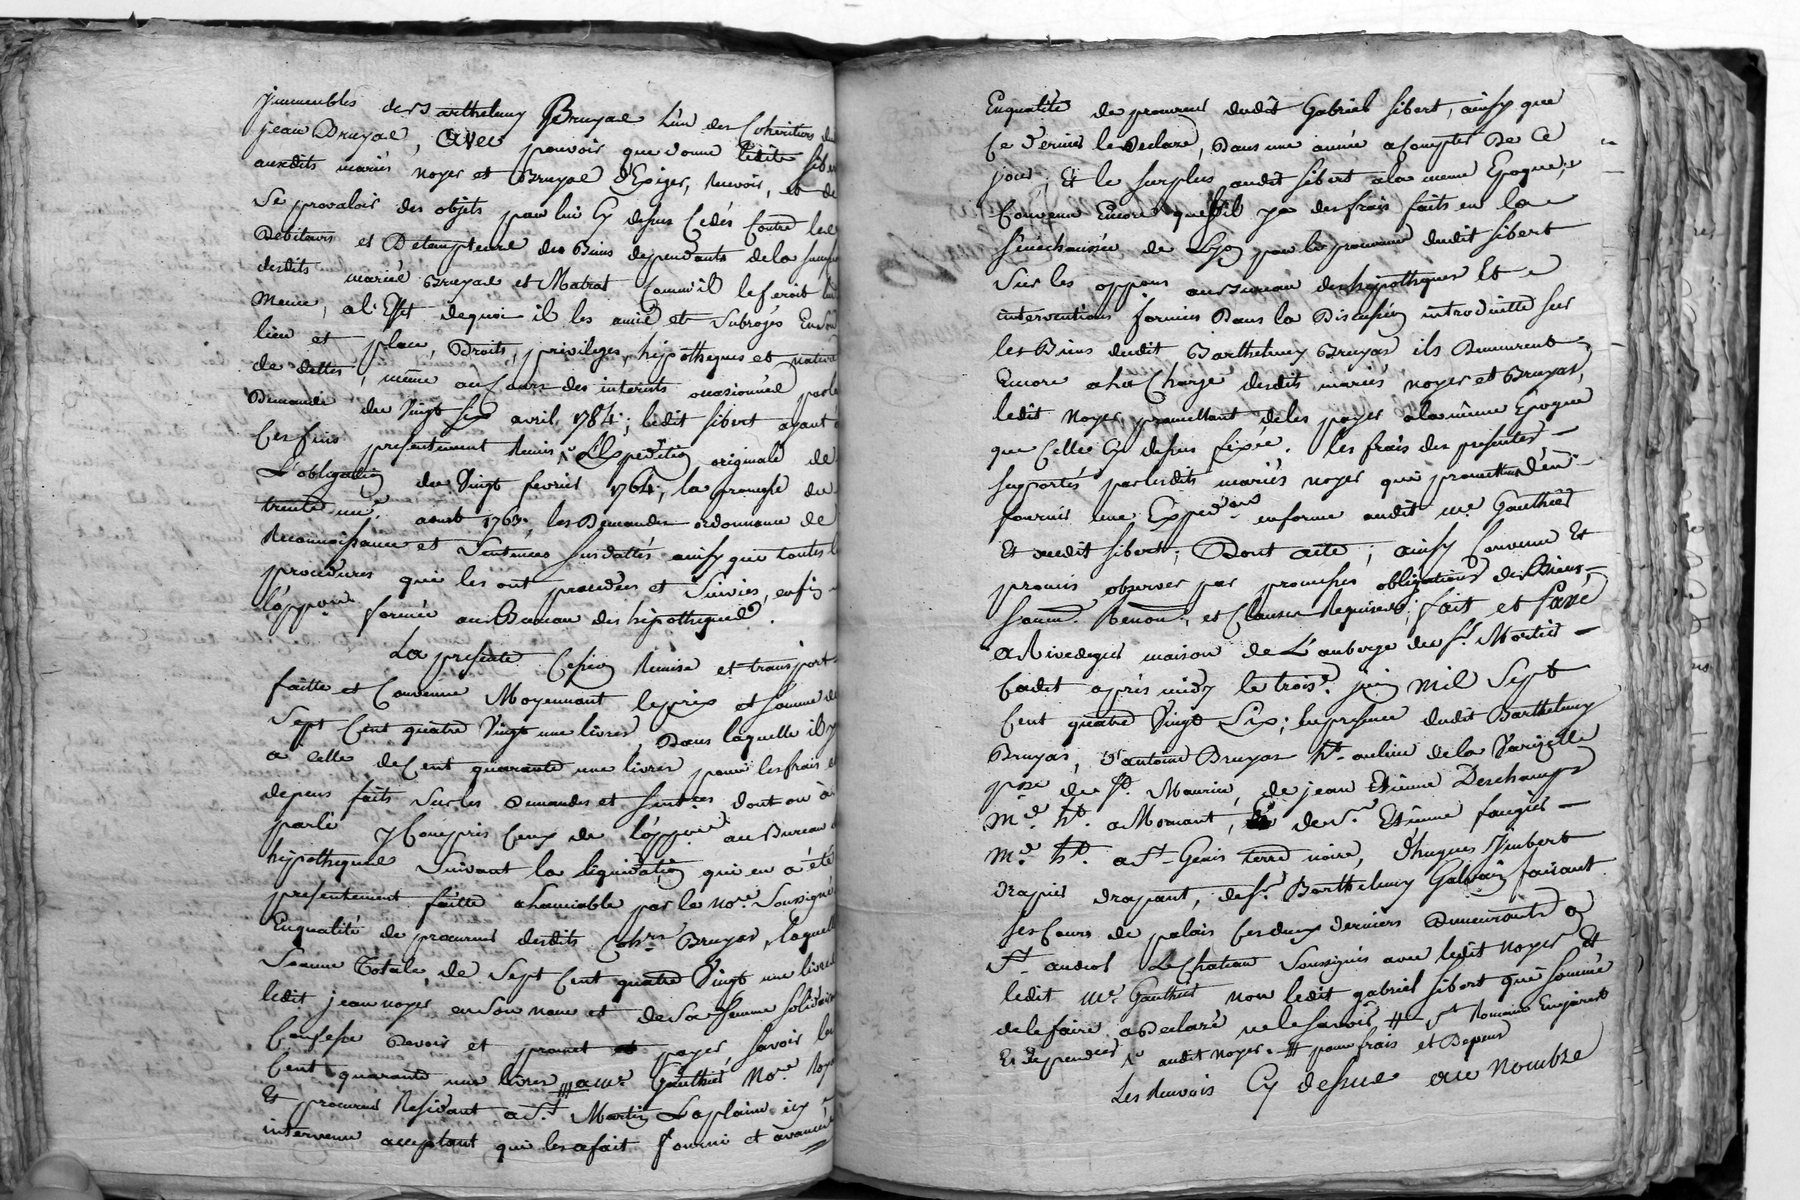 jmmeubles de Barthelemy Bruyas L'un des Coheritiers du
jean Bruyas, avec pouvoir que donne ledit sibert
auxdits mariés noyer et Bruyas d'Exiger, Recevoir, et de
se prevaloir des objets par lui Cy dessus Cedés Contre les
Debiteurs et Detempteurs des Biens dependants de la
desdits mariés Bruyas et Matrat Comm'il le feroit lui
meme, a l'Effet dequoi il les a mis et Subrogés En son
lieu et place, Droits, privileges, hipotheques et nature
de dettes, même au Cours des interets occasionnés par la
Demande du Vingt Six avril 1784; ledit sibert ayant a
Ces fins presentement Remis L'Expedition originale de
L'obligation du Vingt fevrier 1764, la promesse du
trente un aoust 1763, les Demandes ordonnance de
Reconnoissance et Sentences susdattés ainsy que toutes les
procedures qui les ont precedées et Suivies, enfin
l'oppon formée au Bureau des hipotheques.
La presente Cession Remise et transport
faitte et Convenue Moyennant le prix et somme de
Sept Cent quatre Vingt une livres, Dans laquelle il y
a celle de Cent quarante une livres pour les frais et
depens faits Sur les Demandes et Sentces dont on a
parlé y Compris Ceux de l'oppon au Bureau
hipotheques Suivant la liquidation qui en a été
presentement faitte a l'amiable par le nore Soussigné
Enqualité de procureur desdits Cohrs Bruyas, laquelle
Somme Totale, de Sept Cent quatre Vingt une livres
ledit jean noyer en son nom et de Sa femme solidaire
Confesse Devoir et promet payer Savoir les
Cent quarante une livres a me Gauthier Nore
Et procureur Residant a St Martin Laplaine icy
intervenu acceptant qui les a fait fourni et avancé
Enqualité de procureur dudit Gabriel sibert, ainsy que
Ce dernier le Declare, Dans une année a Compter De Ce
jour, Et le surplus audit sibert a la meme Epoque,
Convenu Encore que s'il y a des frais faits en la
senechaussée de Lyon par le procureur dudit sibert
Sur les oppons au Bureau des hipotheques Et
interventions formées Dans la Discussion introduitte sur
les Biens dudit Barthelemy Bruyas ils Demeurent
Encore a la Charge desdits mariés noyer et Bruyas,
ledit noyer promettant de les payer a la même Epoque
que Celle Cy dessus fixée. les frais des presentes
suportés par lesdits mariés noyer qui promettent d'en
fournir une Expedon en forme audit me Gauthier
Et audit sibert; Dont acte; ainsy Convenu Et
promis observer par promesses obligations de Biens
soum. Renon. et Clauses Requises; fait et passé
a Rivedegier maison de L'auberge du sr Mortier
Ledit après midy le trois juin Mil Sept
Cent quatre Vingt Six; En presence dudit Barthelemy
Bruyas, d'antoine Bruyas ht au lieu de la Varizelle
psse de St Maurice, de jean Etienne Deschamps
md ht a Mornant, de sr Etienne faugier
md ht a St Genis terre noire, d'hugues Jmbert
drapier drapant, de sr Barthelemy Galvain faisant
ses Cours de palais Ces deux derniers Demeurants a
St andeol Le Chateau Soussignés avec ledit noyer Et
ledit me Gauthier non ledit gabriel sibert qui sommé
de le faire a Declaré ne le savoir # St Romain En jarest
Et dependces audit noyer. # pour frais et Depens
Les Renvois Cy dessus au nombre